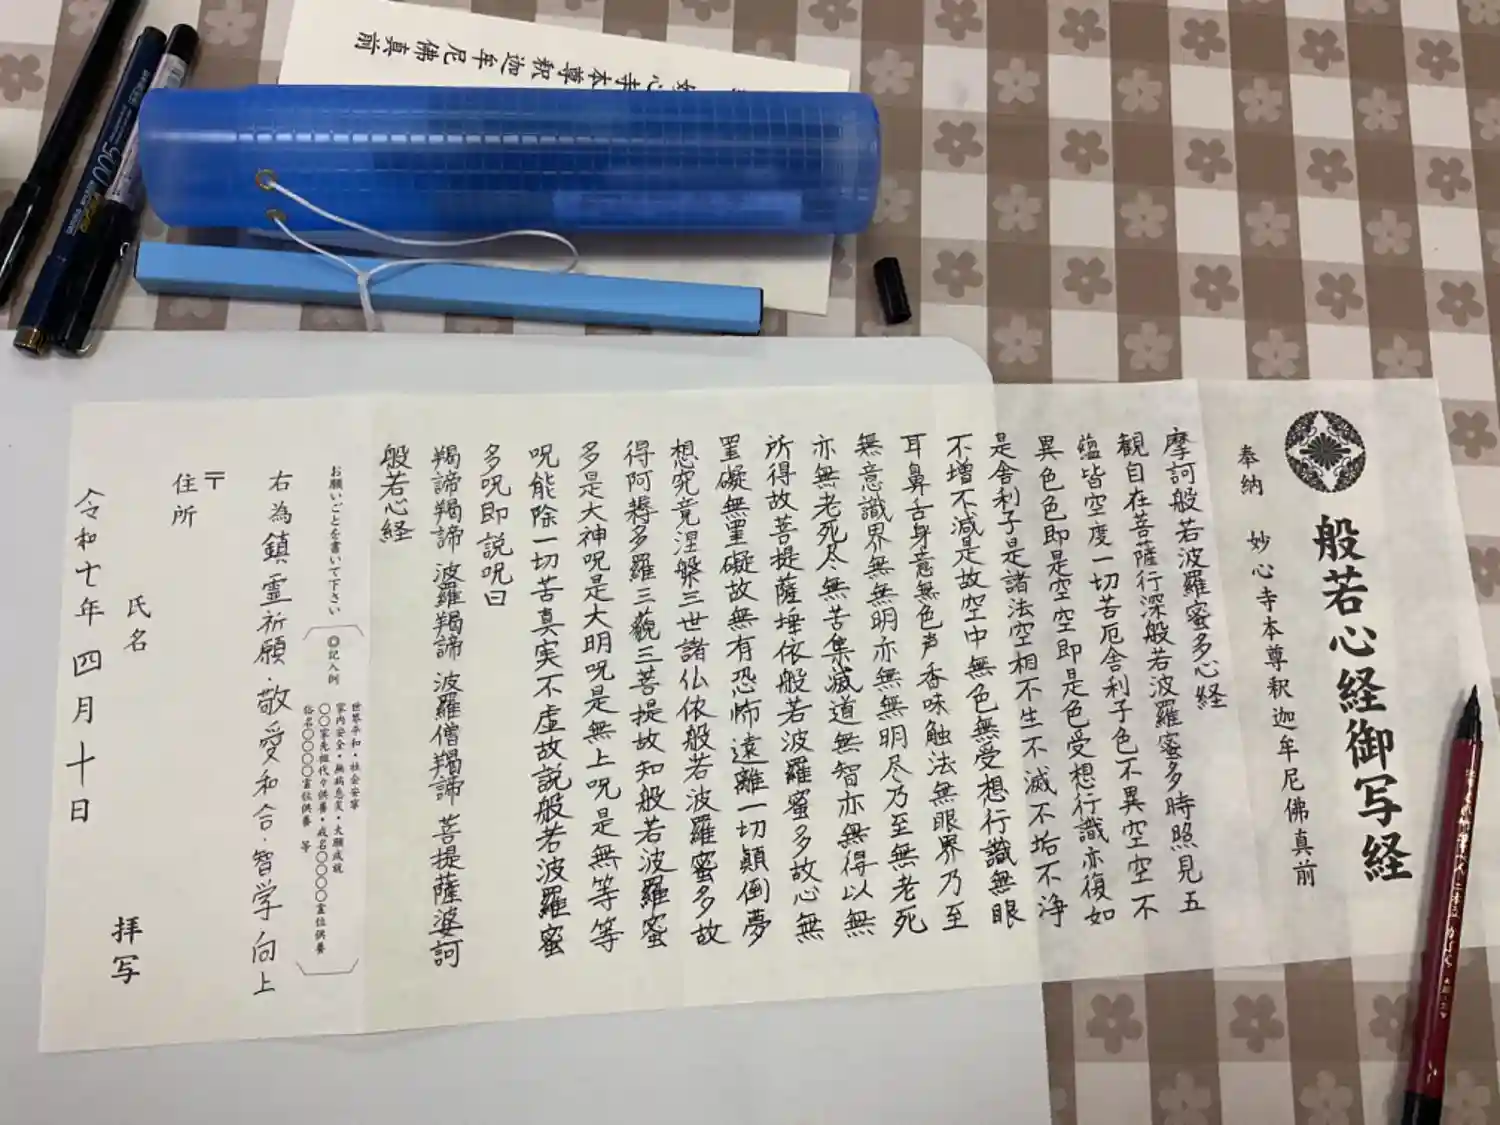 般若心経御写経
奉納　妙心寺本尊釈迦牟尼佛真前
摩訶般若波羅蜜多心経
観自在菩薩行深般若波羅蜜多時照見五
蘊皆空度一切苦厄舎利子色不異空空不
異色色即是空空即是色受想行識亦復如
是舎利子是諸法空相不生不滅不垢不浄
不増不減是故空中無色無受想行識無眼
耳鼻舌身意無色声香味触法無眼界乃至
無意識界無無明亦無無明尽乃至無老死
亦無老死尽無苦集滅道無智亦無得以無
所得故菩提薩埵依般若波羅蜜多故心無
罣礙無罣礙故無有恐怖遠離一切顛倒夢
想究竟涅槃三世諸仏依般若波羅蜜多故
得阿耨多羅三藐三菩提故知般若波羅蜜
多是大神呪是大明呪是無上呪是無等等
呪能除一切苦真実不虚故説般若波羅蜜
多呪即説呪曰
羯諦羯諦　波羅羯諦　波羅僧羯諦　菩提薩婆訶
般若心経
お願いごとを書いて下さい
◎記入例
世界平和・社会安寧
家内安全・無病息災・大願成就
〇〇家先祖代々供養・戒名〇〇〇〇霊位供養
俗名〇〇〇〇霊位供養　等
右為鎮霊祈願・敬愛和合・智学向上
〒
住所
氏名
拝写
令和七年四月十日
心寺本尊釈迦牟尼佛真前
005